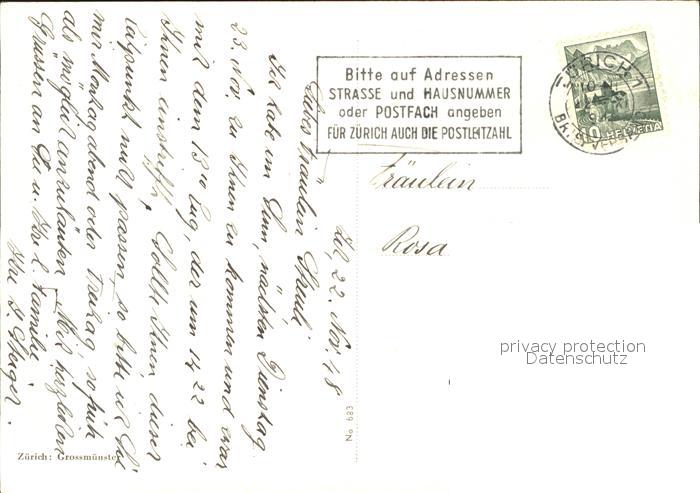 Bitte auf Adressen
STRASSE und HAUSNUMMER
oder POSTFACH angeben
FÜR ZÜRICH AUCH DIE POSTLEITZAHL
ZÜRICH 1
HELVETIA
Fräulein
Rosa
privacy protection
Datenschutz
No 683
Zürich: Grossmünster
22. Nov. 48
Liebes Fräulein
Ich habe im Sinn, nächsten Dienstag
23. Nov. zu Ihnen zu kommen und zwar
mit dem 13 Zug, der um 14 22 bei
Ihnen eintrifft. Sollte Ihnen dieser
Zeitpunkt nicht passen, so bitte ich Sie
mir Montag abend oder Freitag so früh
als möglich anzuläuten. Mit herzlichen
Grüssen an Sie u. Ihre l. Familie
Ihre